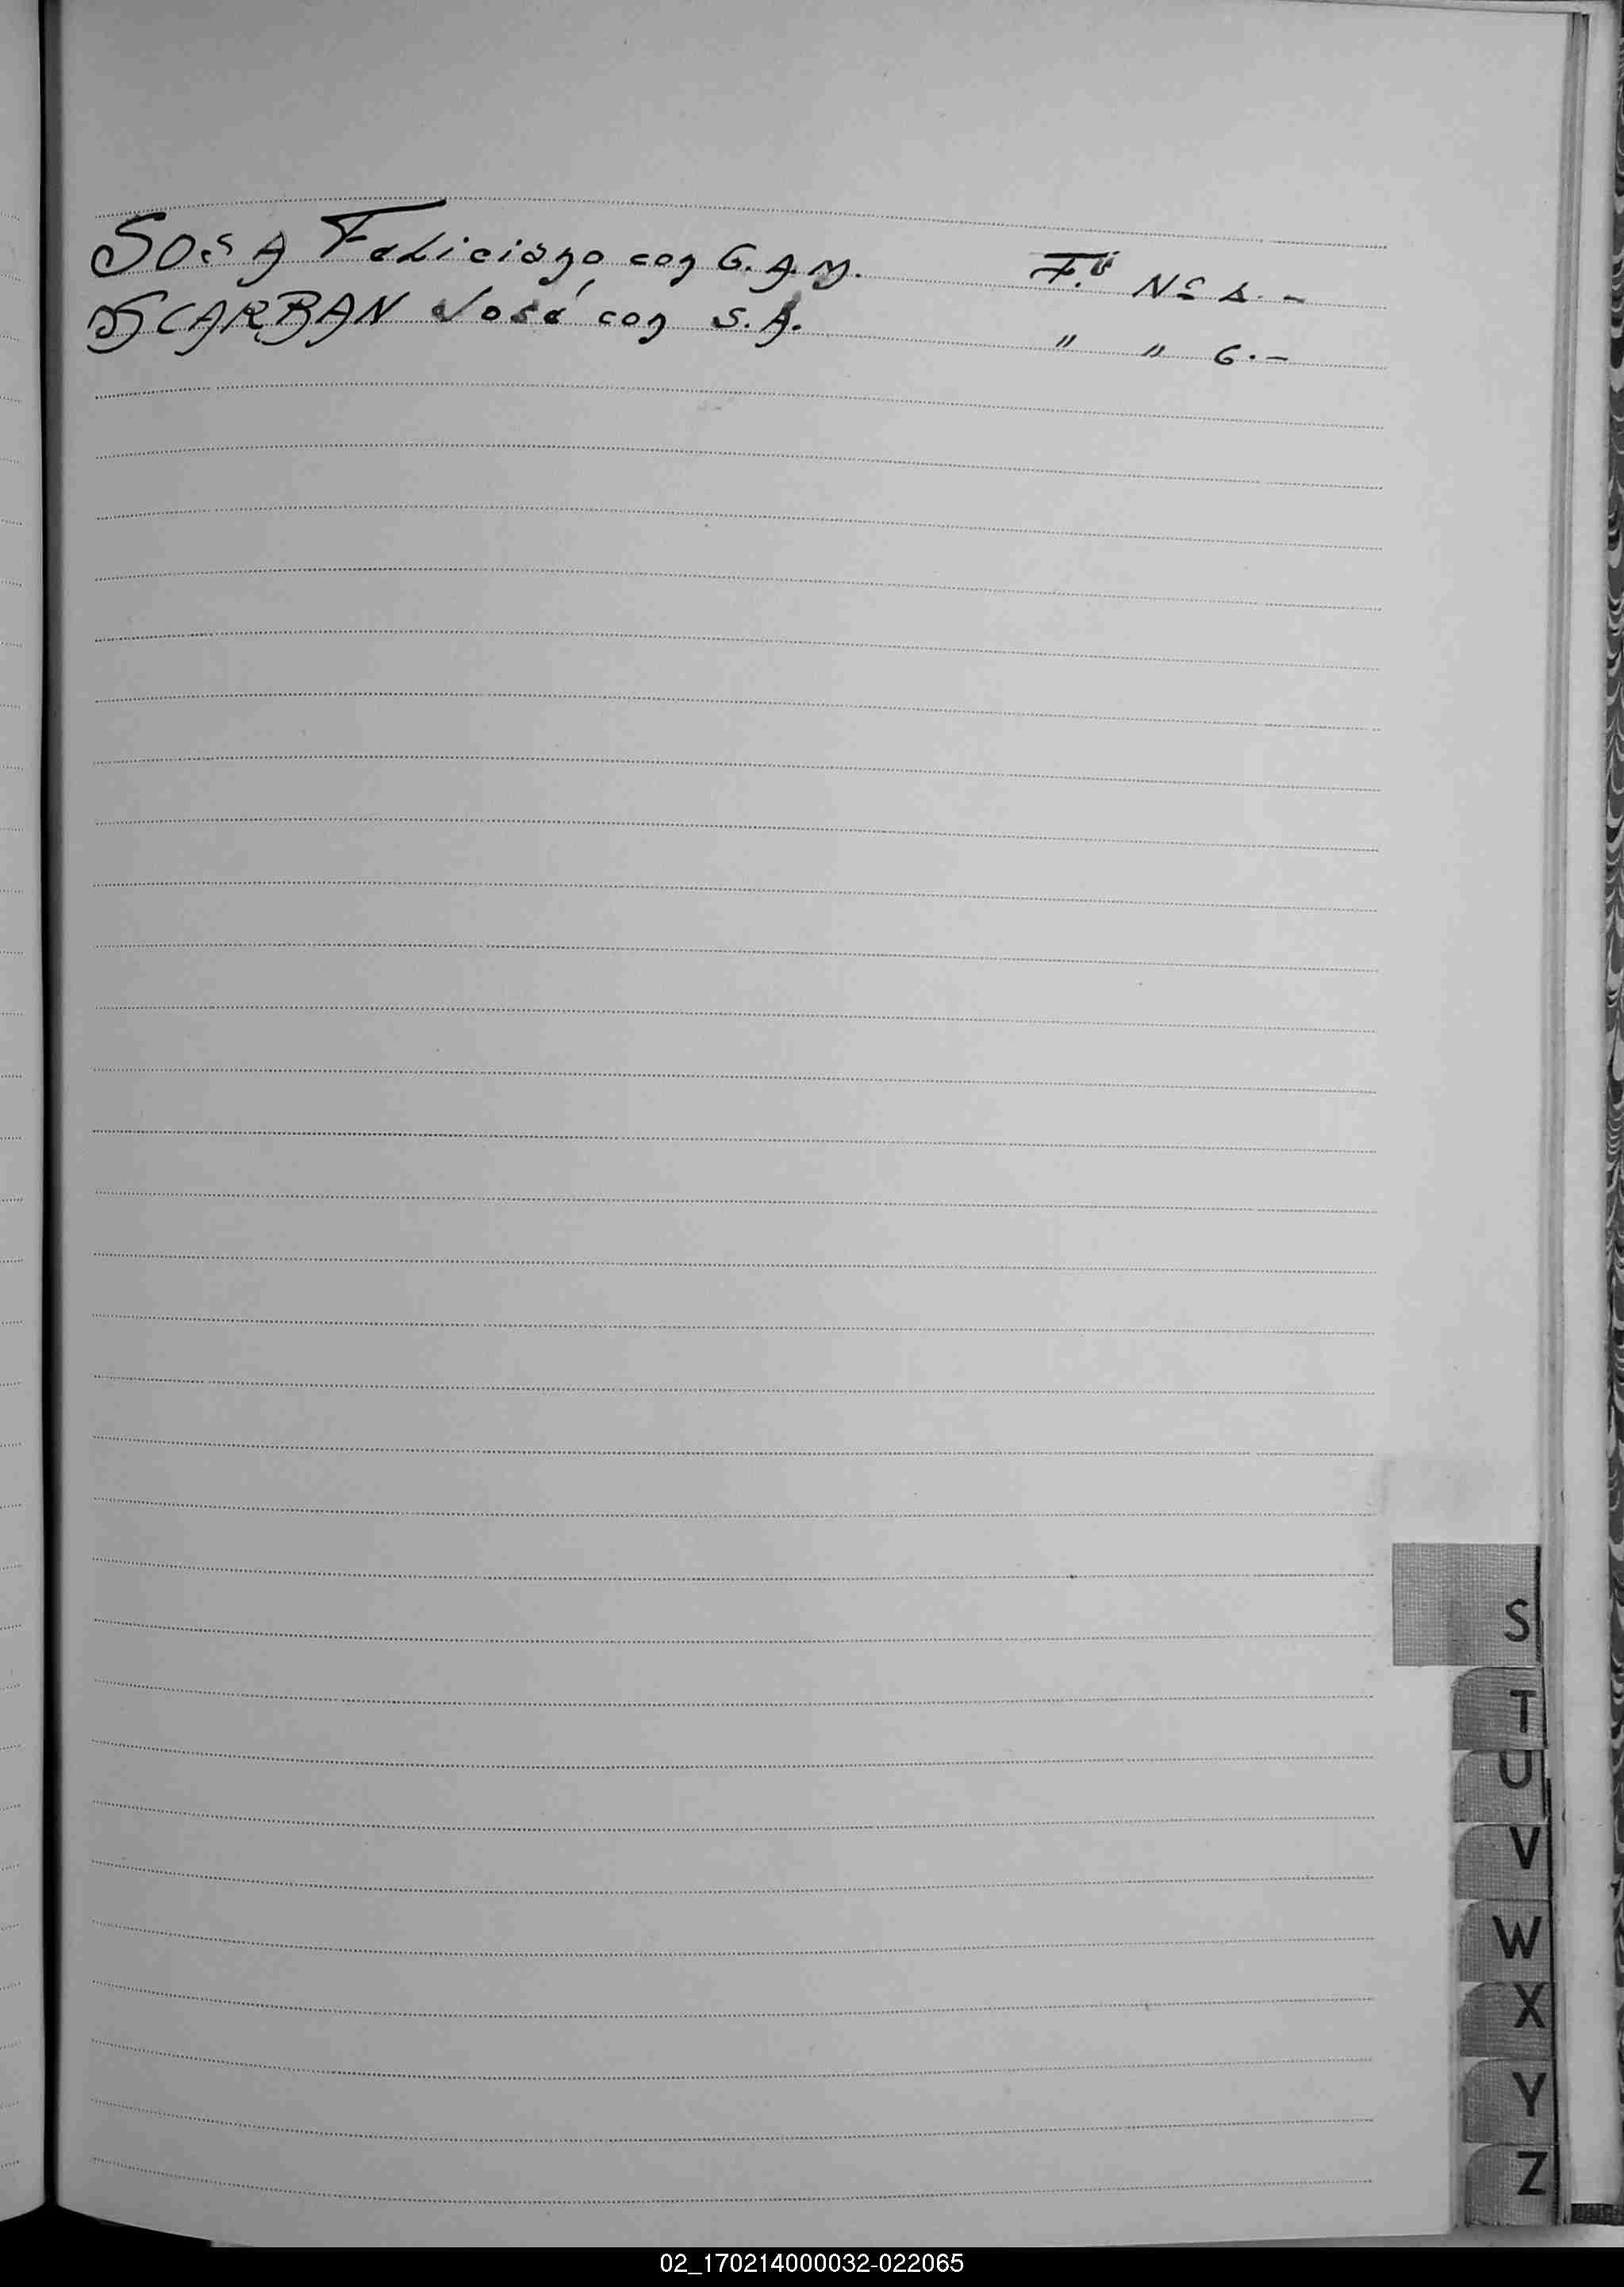 SOSA Feliciano, con G.A.M. Fº Nº 1.-
SCARBAN José, con S.A. " " 6.-
S
T
U
V
W
X
Y
Z
02_170214000032-022065